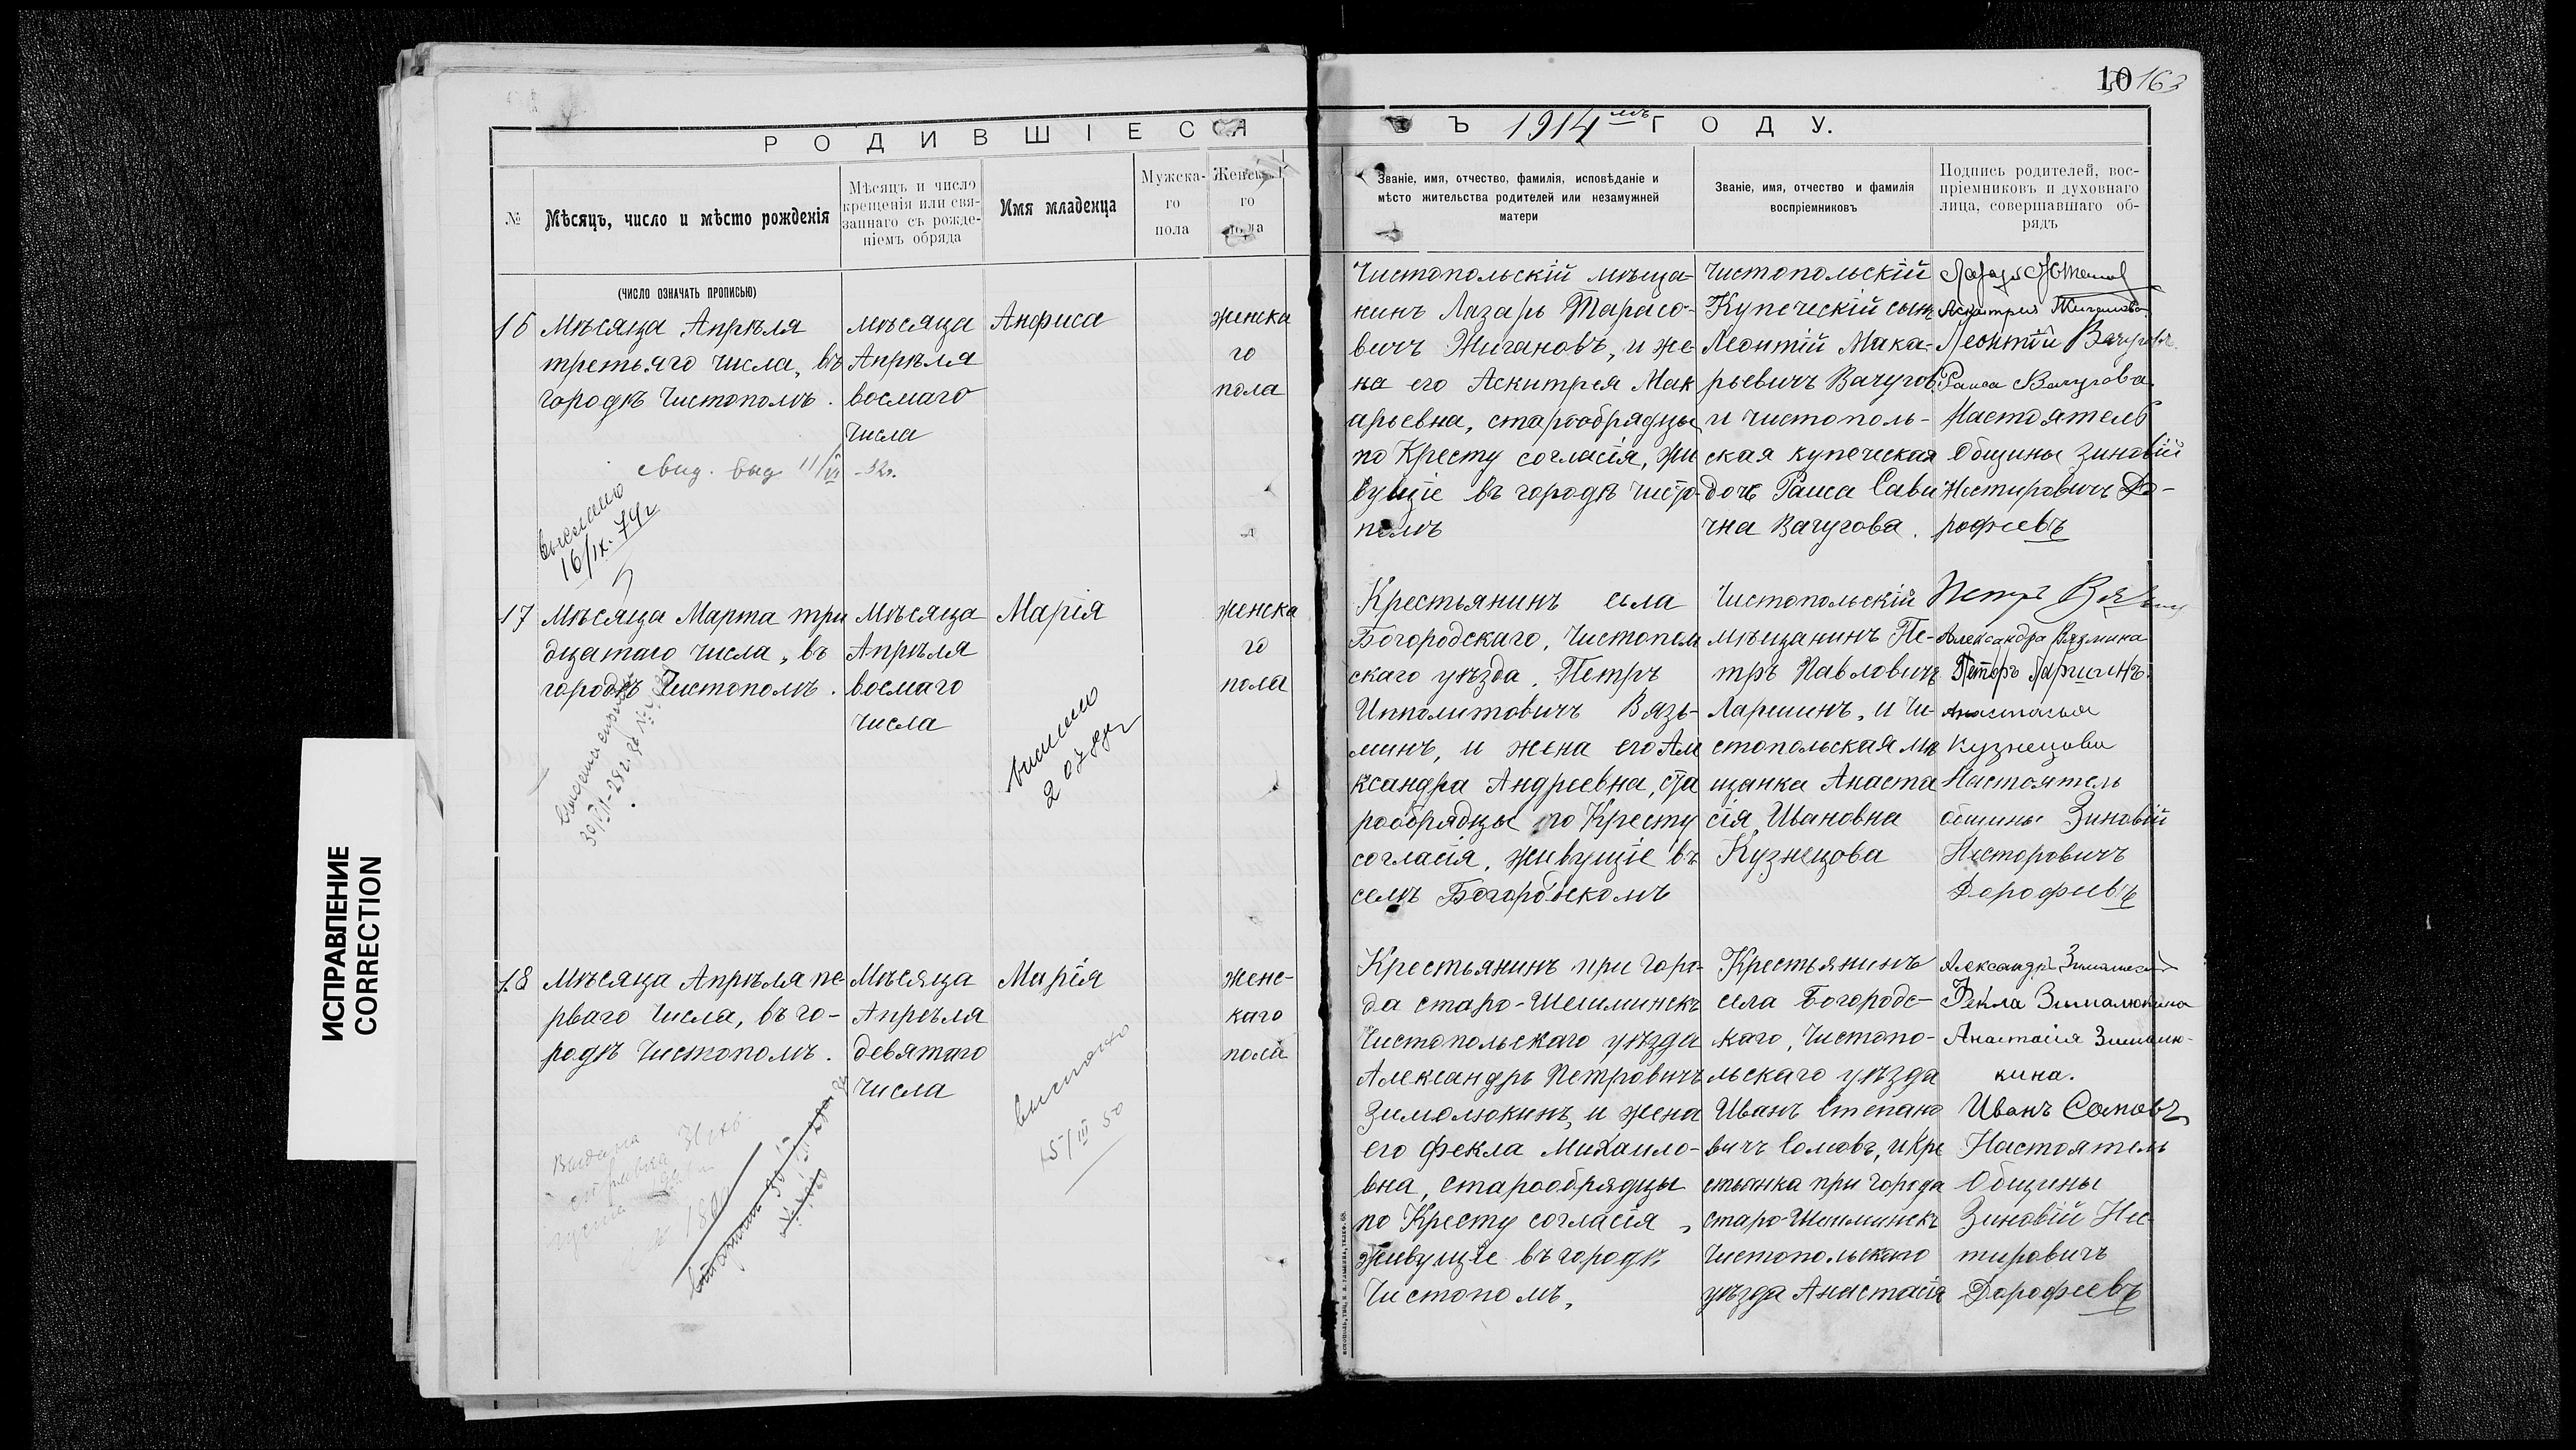 РОДИВШІЕСЯ
ВЪ 1914 мъ ГОДУ.
10 163
№
Мѣсяцъ, число и мѣсто рожденія
Мѣсяцъ и число
крещенія или свя-
заннаго съ рожде-
ніемъ обряда
Имя младенца
Мужска-
го
пола
Женска-
го
пола
Званіе, имя, отчество, фамилія, исповѣданіе и
мѣсто жительства родителей или незамужней
матери
Званіе, имя, отчество и фамилія
воспріемниковъ
Подпись родителей, вос-
пріемниковъ и духовнаго
лица, совершавшаго об-
рядъ
(ЧИСЛО ОЗНАЧАТЬ ПРОПИСЬЮ)
16
Мѣсяца Апрѣля
третьяго числа, въ
городѣ Чистополѣ.
мѣсяца
Апрѣля
восмаго
числа
Анфиса
женска
го
пола
Чистопольскій мѣща-
нинъ Лазарь Тарасо-
вичъ Жигановъ, и же
на его Аскитрея Мак
арьевна, старообрядцы
по Кресту согласія, жи
вущіе въ городѣ Чисто-
полѣ
Чистопольскій
Купеческій сынъ
Леонтій Мака-
рьевичъ Вачугов
и чистополь-
ская купеческая
дочь Раиса Сави
чна Вачугова.
Леонтій
Раиса Вачугова
Настоятель
Общины Зиновій
Нестировичъ До-
рофеевъ
свид. выд. 11/VI -32г.
выслано
16/IX. 74г
17
Мѣсяца Марта три
дцатаго числа, въ
городѣ Чистополѣ.
Мѣсяца
Апрѣля
восмаго
числа
Марія
женска
го
пола
Крестьянинъ села
Богородскаго, Чистопол
скаго уѣзда, Петръ
Ипполитовичъ Вязь-
минъ, и жена его Але
ксандра Андреевна, ста
рообрядцы по Кресту
согласія, живущіе въ
селѣ Богородскомъ
Чистопольскій
мѣщанинъ Пе-
тръ Павловичъ
Ларшинъ, и Чи-
стопольская мѣ
щанка Анаста
сія Ивановна
Кузнецова
Петръ
Александра Вязмина
Анастасья
Кузнецова
Настоятель
общины Зиновій
Несторовичъ
Дорофеевъ
18
Мѣсяца Апрѣля пе-
рваго числа, въ го-
родѣ Чистополѣ.
Мѣсяца
Апрѣля
девятаго
числа
Марія
женс-
каго
пола
Крестьянинъ при горо-
да старо-Шешминскъ
Чистопольскаго уѣзда
Александръ Петровичъ
Зималюкинъ, и жена
его Фекла Михаило-
вна, старообрядцы
по Кресту согласія,
живущіе въ городѣ
Чистополѣ,
Крестьянинъ
села Богородс-
каго, Чистопо-
льскаго уѣзда
Иванъ Степано
вичъ Сомовъ, и Кре
стьянка при города
старо Шешминскъ
Чистопольскаго
уѣзда Анастасія
Александръ
Фекла Зималюкина
Анастасія Зималю-
кина.
Иванъ Сомовъ
Настоятель
Общины
Зиновій Нес-
тировичъ
Дорофеевъ
выслано
15/III 50
ИСПРАВЛЕНИЕ
CORRECTION